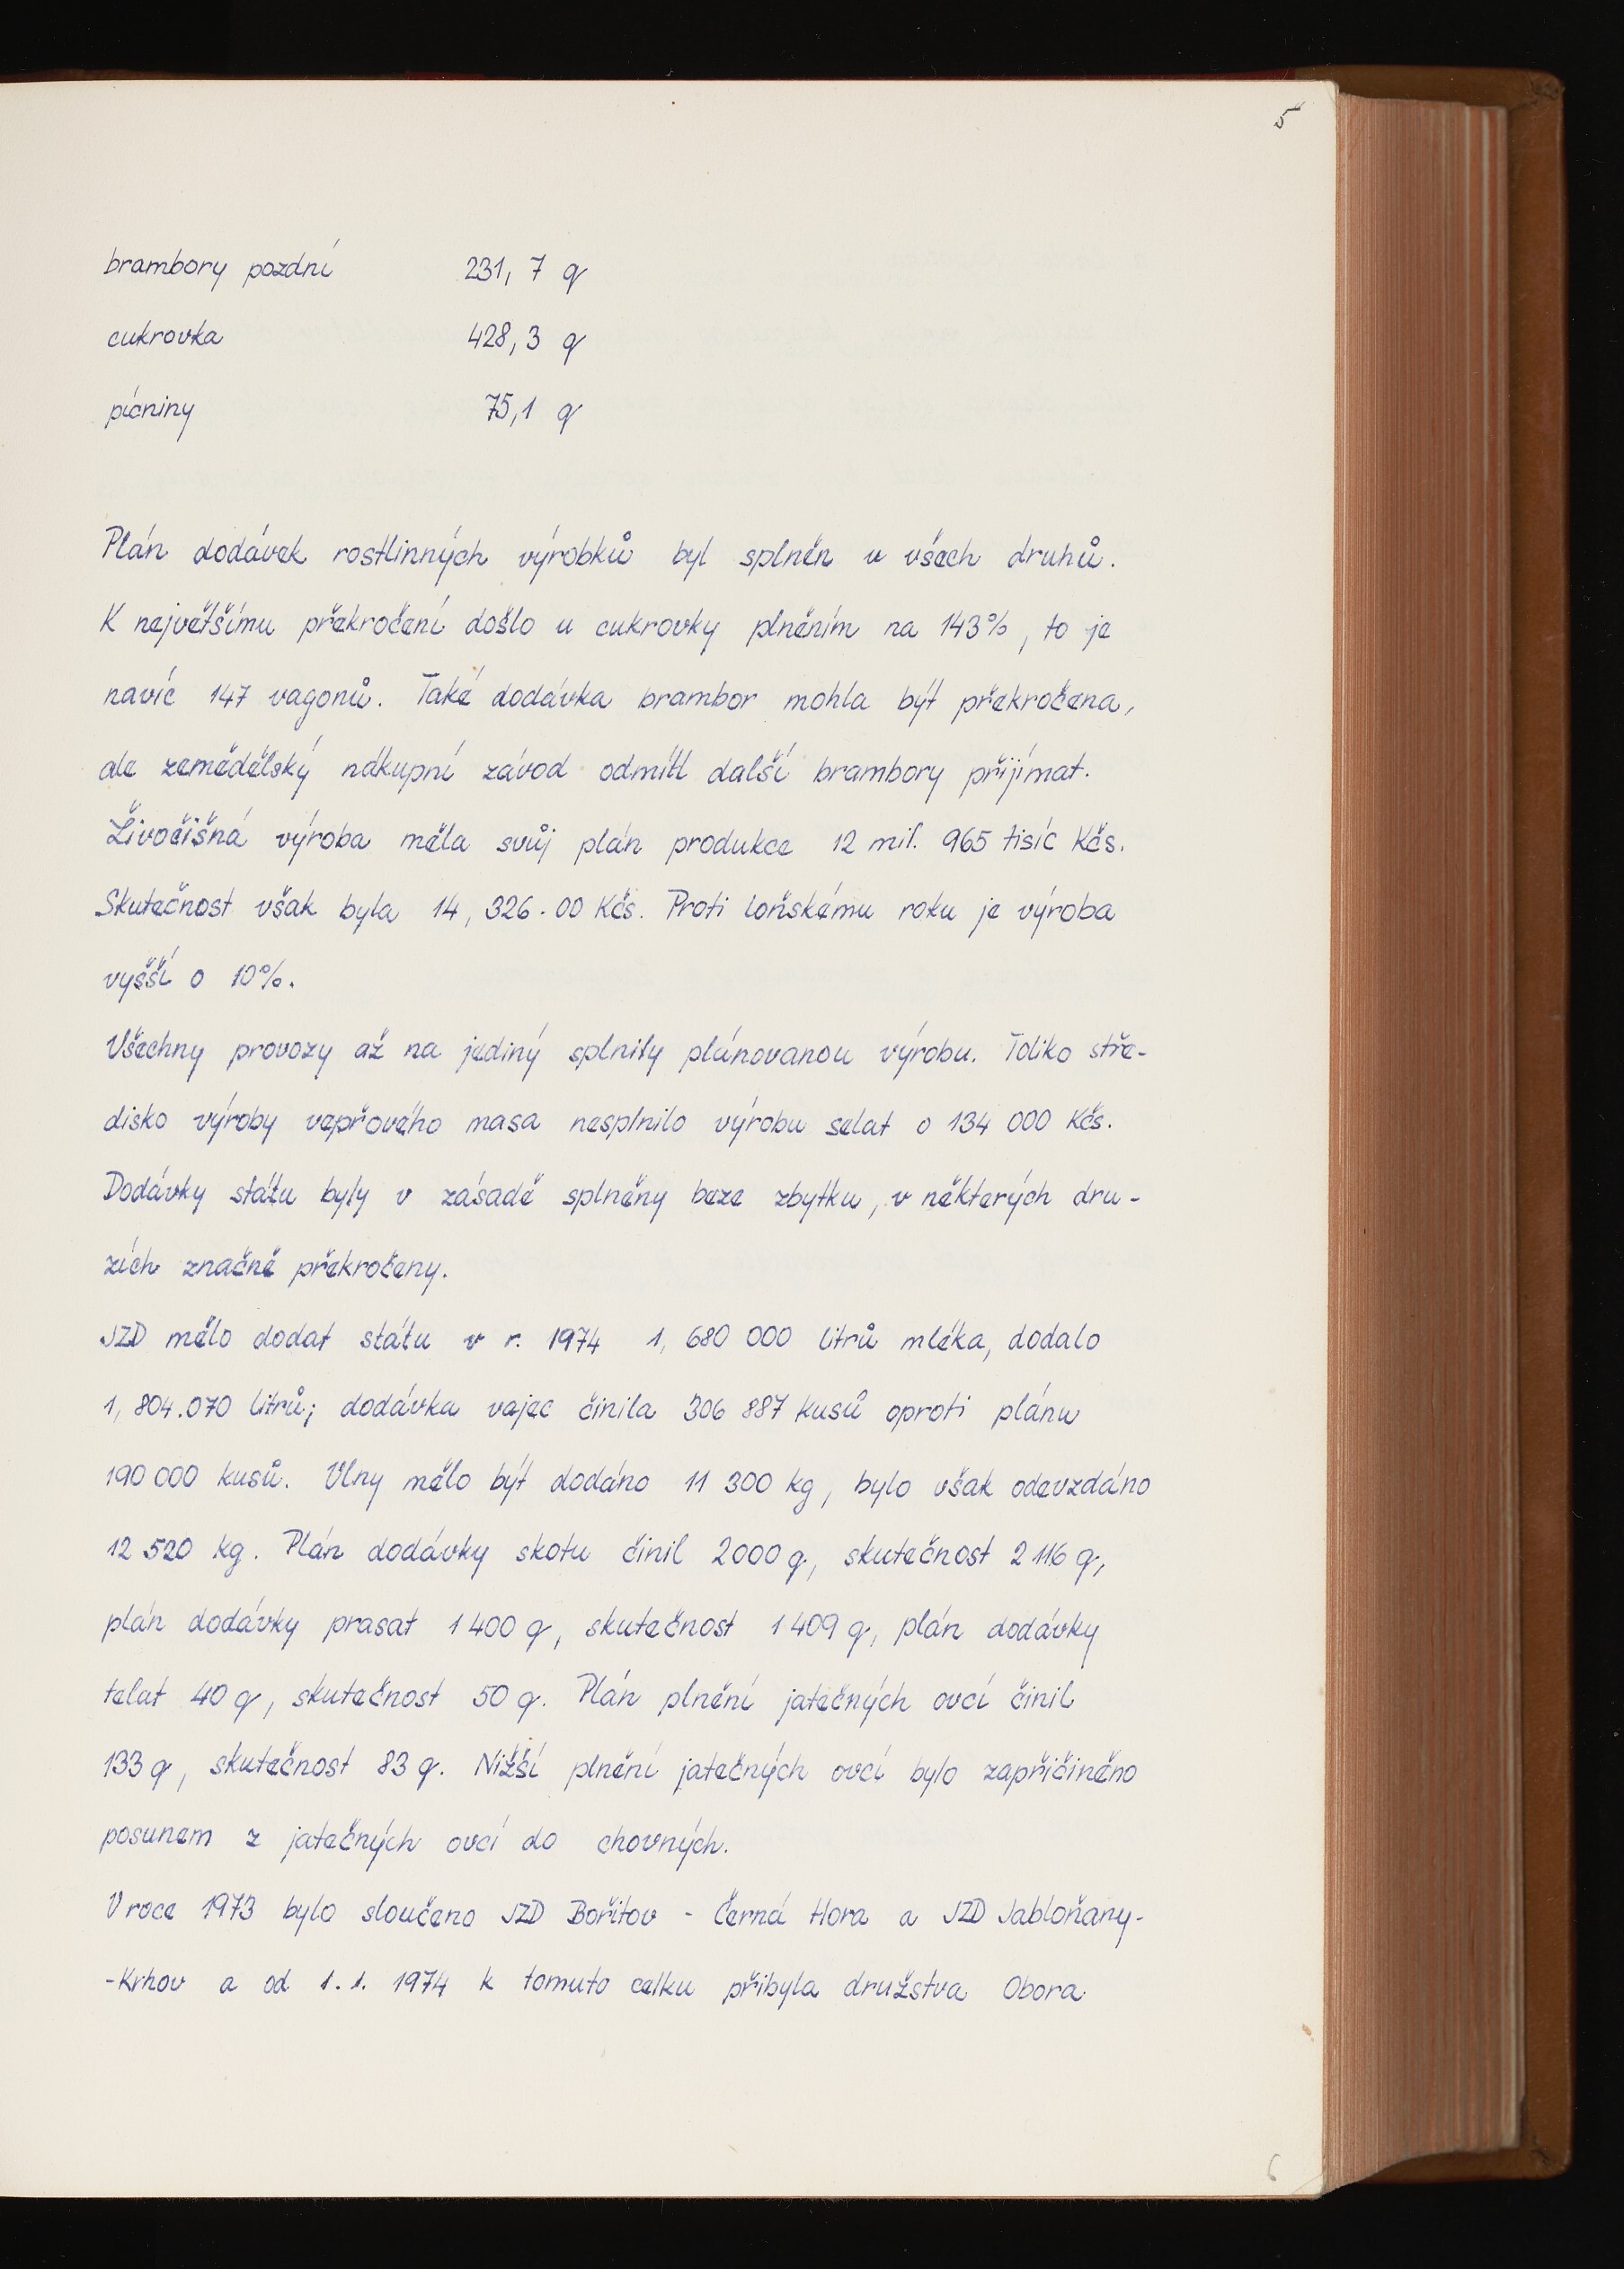 5
brambory pozdní 231, 7 q
cukrovka 428, 3 q
pícniny 75,1 q
Plán dodávek rostlinných výrobků byl splněn u všech druhů.
K největšímu překročení došlo u cukrovky plněním na 143%, to je
navíc 147 vagonů. Také dodávka brambor mohla být překročena,
ale zemědělský nákupní závod odmítl další brambory přijímat.
Živočišná výroba měla svůj plán produkce 12 mil. 965 tisíc Kčs.
Skutečnost však byla 14, 326.00 Kčs. Proti loňskému roku je výroba
vyšší o 10%.
Všechny provozy až na jediný splnily plánovanou výrobu. Toliko stře-
disko výroby vepřového masa nesplnilo výrobu selat o 134 000 Kčs.
Dodávky státu byly v zásadě splněny beze zbytku, v některých dru-
zích značně překročeny.
JZD mělo dodat státu v r. 1974 1, 680 000 litrů mléka, dodalo
1, 804.070 litrů; dodávka vajec činila 306 887 kusů oproti plánu
190 000 kusů. Vlny mělo být dodáno 11 300 kg, bylo však odevzdáno
12 520 kg. Plán dodávky skotu činil 2000 q, skutečnost 2 116 q,
plán dodávky prasat 1 400 q, skutečnost 1 409 q, plán dodávky
telat 40 q, skutečnost 50 q. Plán plnění jatečných ovcí činil
133 q, skutečnost 83 q. Nižší plnění jatečných ovcí bylo zapříčiněno
posunem z jatečných ovcí do chovných.
V roce 1973 bylo sloučeno JZD Bořitov - Černá Hora a JZD Jabloňany-
-Krhov a od 1. 1. 1974 k tomuto celku přibyla družstva Obora
6